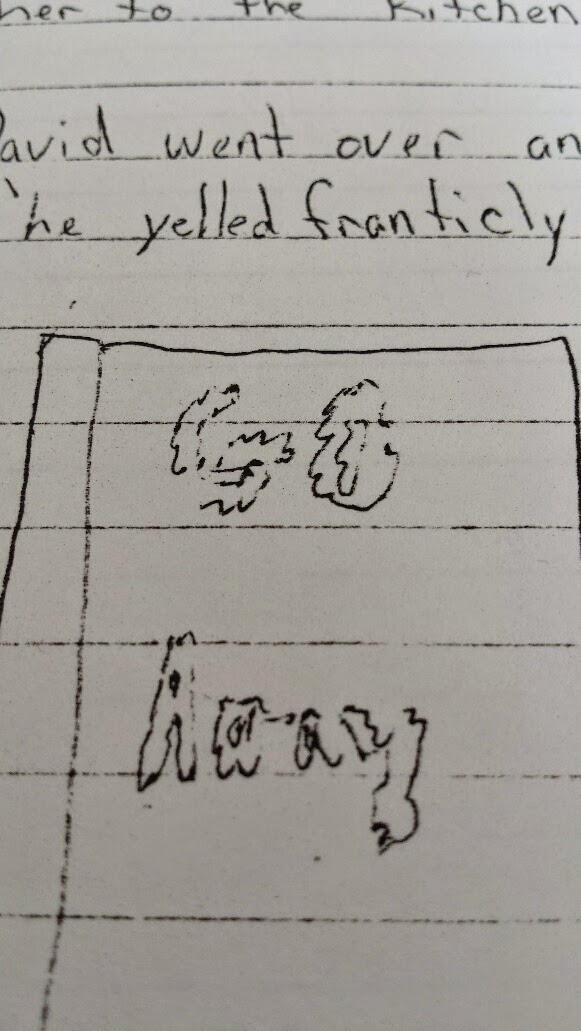 her to the kitchen
David went over an
he yelled franticly
Go
Away